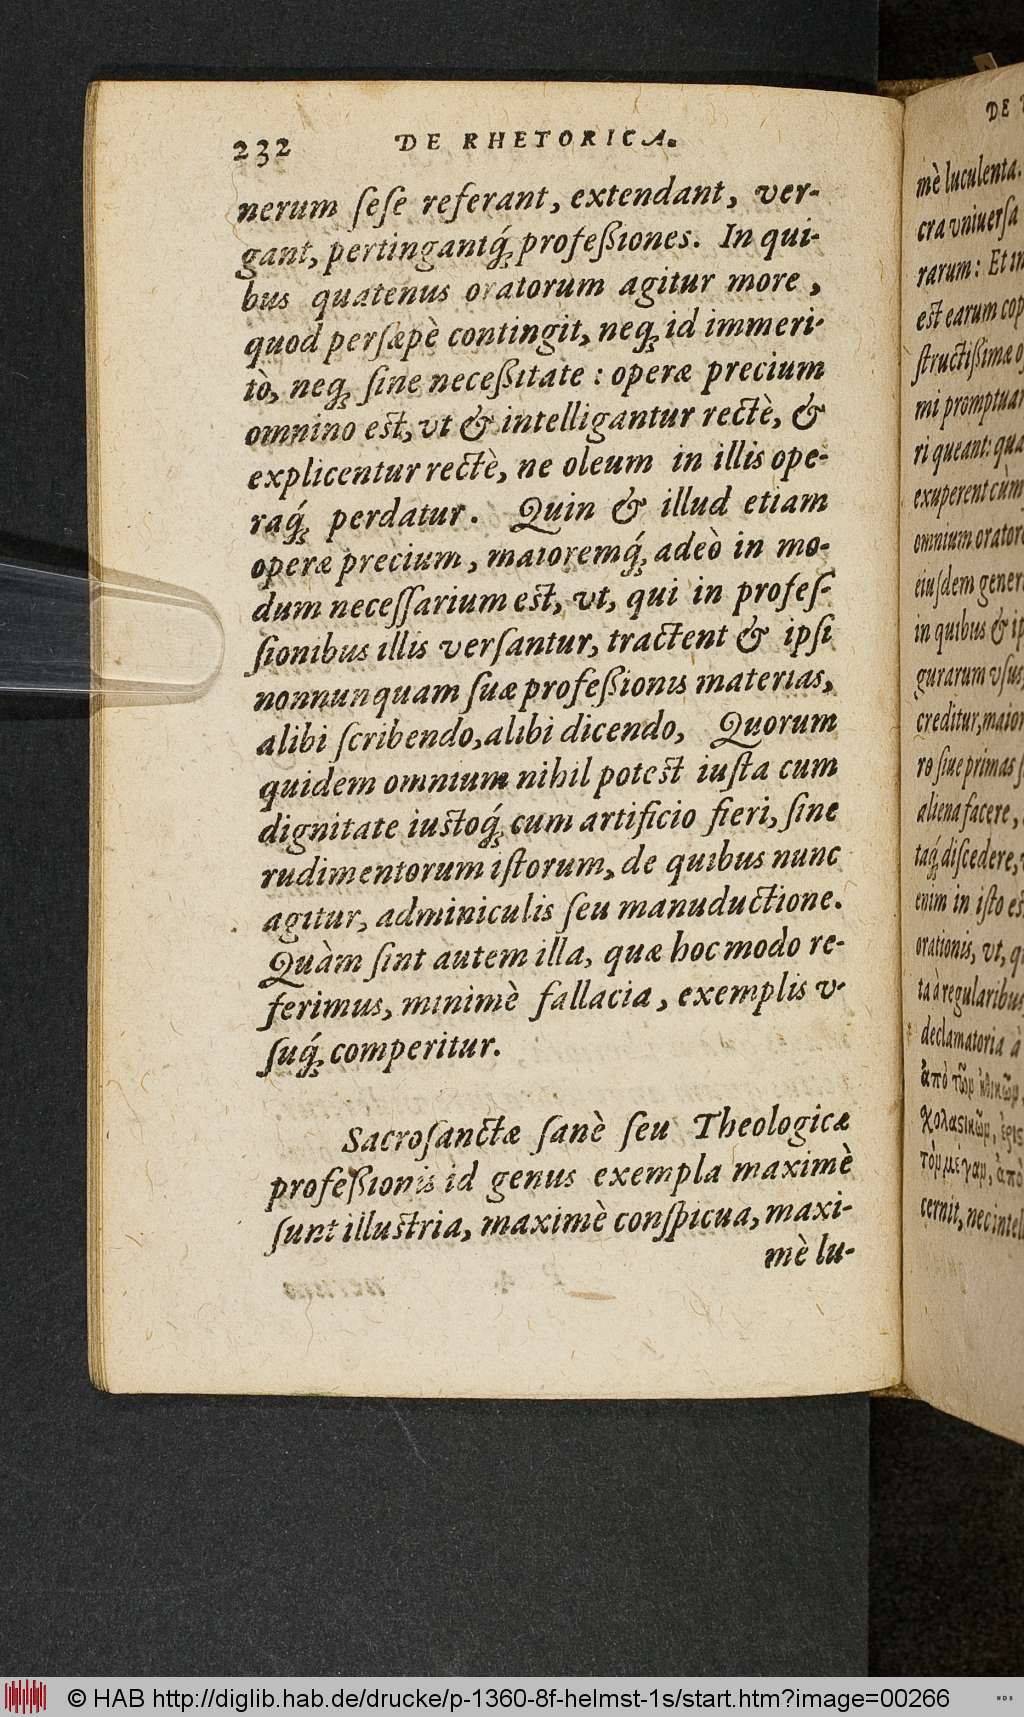 232 DE RHETORICA.
nerum ſeſe referant, extendant, ver-
gant, pertingantq́; profeßiones. In qui-
bus quatenus oratorum agitur more,
quod perſæpè contingit, neq; id immeri-
tò, neq; ſine neceßitate: operæ precium
omnino est, vt & intelligantur rectè, &
explicentur rectè, ne oleum in illis ope-
raq́; perdatur. Quin & illud etiam
operæ precium, maioremq́; adeò in mo-
dum neceſſarium est, vt, qui in profeſ-
ſionibus illis verſantur, tractent & ipſi
nonnunquam ſuæ profeßionis materias,
alibi ſcribendo, alibi dicendo, Quorum
quidem omnium nihil potest iuſta cum
dignitate iustoq́; cum artificio fieri, ſine
rudimentorum iſtorum, de quibus nunc
agitur, adminiculis ſeu manuductione.
Quàm ſint autem illa, quæ hoc modo re-
ferimus, minimè fallacia, exemplis v-
ſuq́; comperitur.
Sacroſanctæ ſanè ſeu Theologicæ
profeßionis id genus exempla maximè
ſunt illustria, maximè conſpicua, maxi-
mè lu-
DE
mè luculenta.
cra vniuerſa
rarum: Et in
est earum cop
ſtructißimæ o
mi promptuar
ri queant: qua
exuperent cùm
omnium orator
eiuſdem gener
in quibus & ip
gurarum vſus
creditur, maior
ro ſiue primas ſ
aliena facere,
taq́; diſcedere,
enim in iſto es
orationis, vt, q
ta à regularibus
declamatoria à
ἀπὸ τῶμ ἠθικῶμ
χολαςικῶμ, ἐρις
τὸμ μέγαμ, ἀπὸ
cernit, nec intel
© HAB http://diglib.hab.de/drucke/p-1360-8f-helmst-1s/start.htm?image=00266